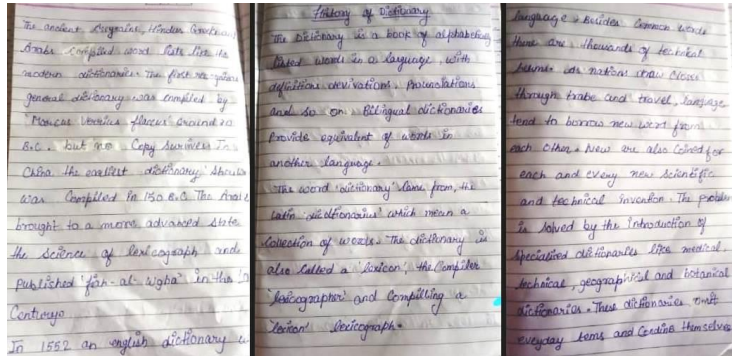 The ancient Egyptains, Hindus Greek and
Arabs compiled word lists like its
modern dictionaries. The first recognises
general dictionary was compiled by
Marcus Verrius flaccus around 20
B.C. but no Copy survives In
China the earliest dictionary
was Compiled in 150 B.C. The Arabs
brought to a more advanced state
the science of lexicograph and
Published in the
Century.
In 1552 an english dictionary
History of Dictionary
The Dictionary is a book of alphabeticaly
listed words in a language, with
definitions derivations, Pronunciations
and so on. Bilingual dictionaries
Provide equivalent of words in
another language.
The word 'dictionary' came from, the
Latin which mean a
Collection of words. The dictionary is
also called a 'lexicon', the Compiler
'lexicographer' and compilling a
'lexicon' lexicograph.
language. Besides Common words
there are thousands of technical
terms. as nations draw closer
through trade and travel, language
tend to borrow new word from
each other. New are also Coined for
each and every new Scientific
and technical invention. The problem
is solved by the introduction of
Specialized dictionaries like medical,
technical, geographical and botanical
dictionaries. These dictionaries omit
everyday terms and Confine themselves